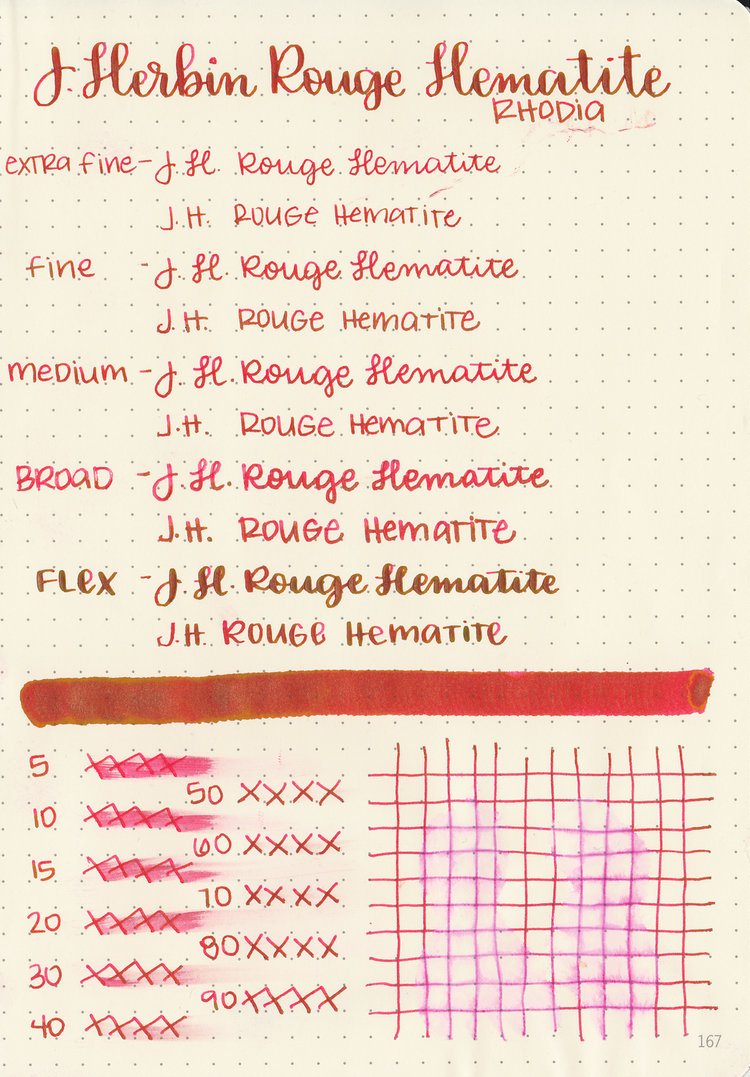 J. Herbin Rouge Hematite
RHODia
exTRa fine - J. H. Rouge Hematite
J.H. ROUGe HemaTiTe
fine - J. H. Rouge Hematite
J.H. ROUGe HemaTiTe
meDium - J. H. Rouge Hematite
J.H. ROUGe HemaTiTe
BROaD - J. H. Rouge Hematite
J.H. ROUGe HemaTiTe
FLex - J. H. Rouge Hematite
J.H. ROUGe HemaTiTe
5 XXXX
50 XXXX
10 XXXX
60 XXXX
15 XXXX
70 XXXX
20 XXXX
80 XXXX
30 XXXX
90 XXXX
40 XXXX
167